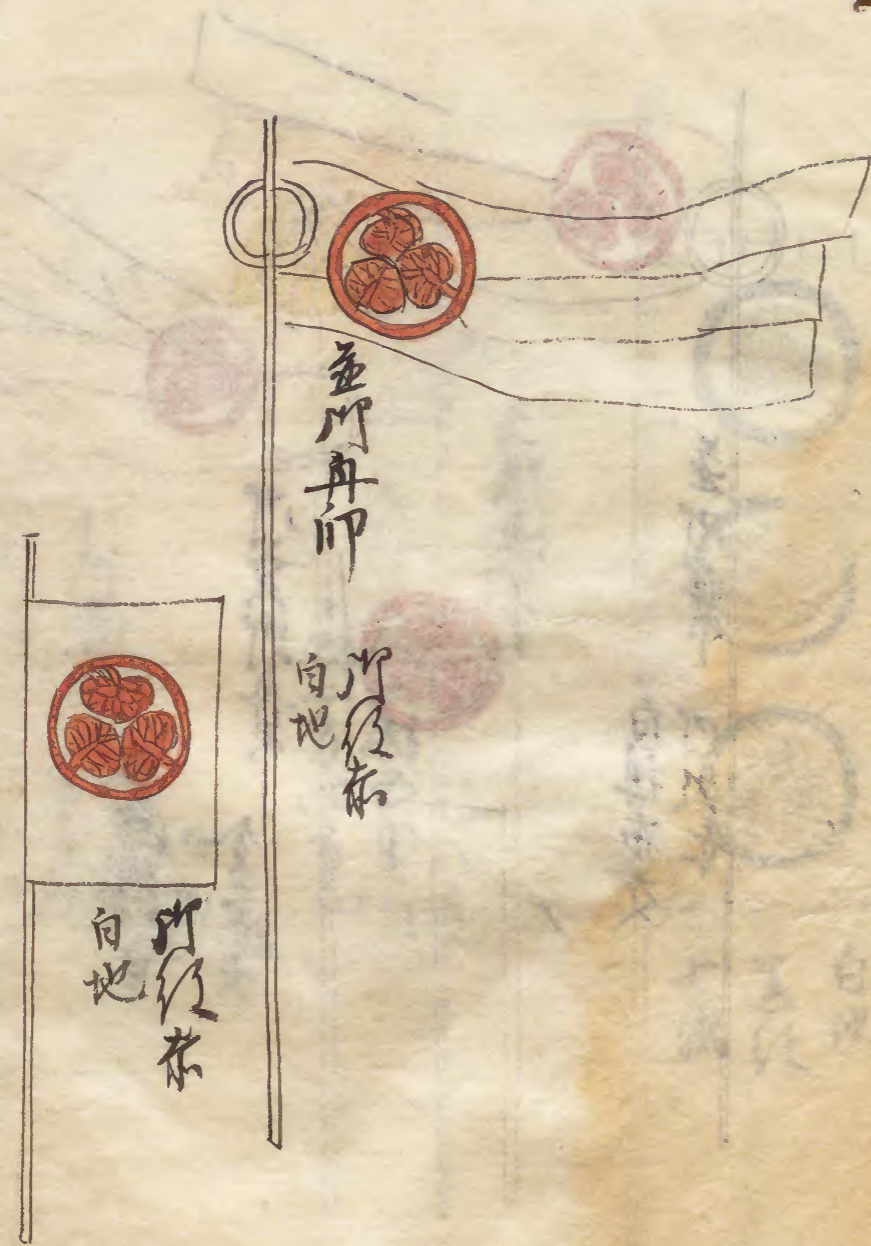 並御舟印
御紋赤
白地
御紋赤
白地